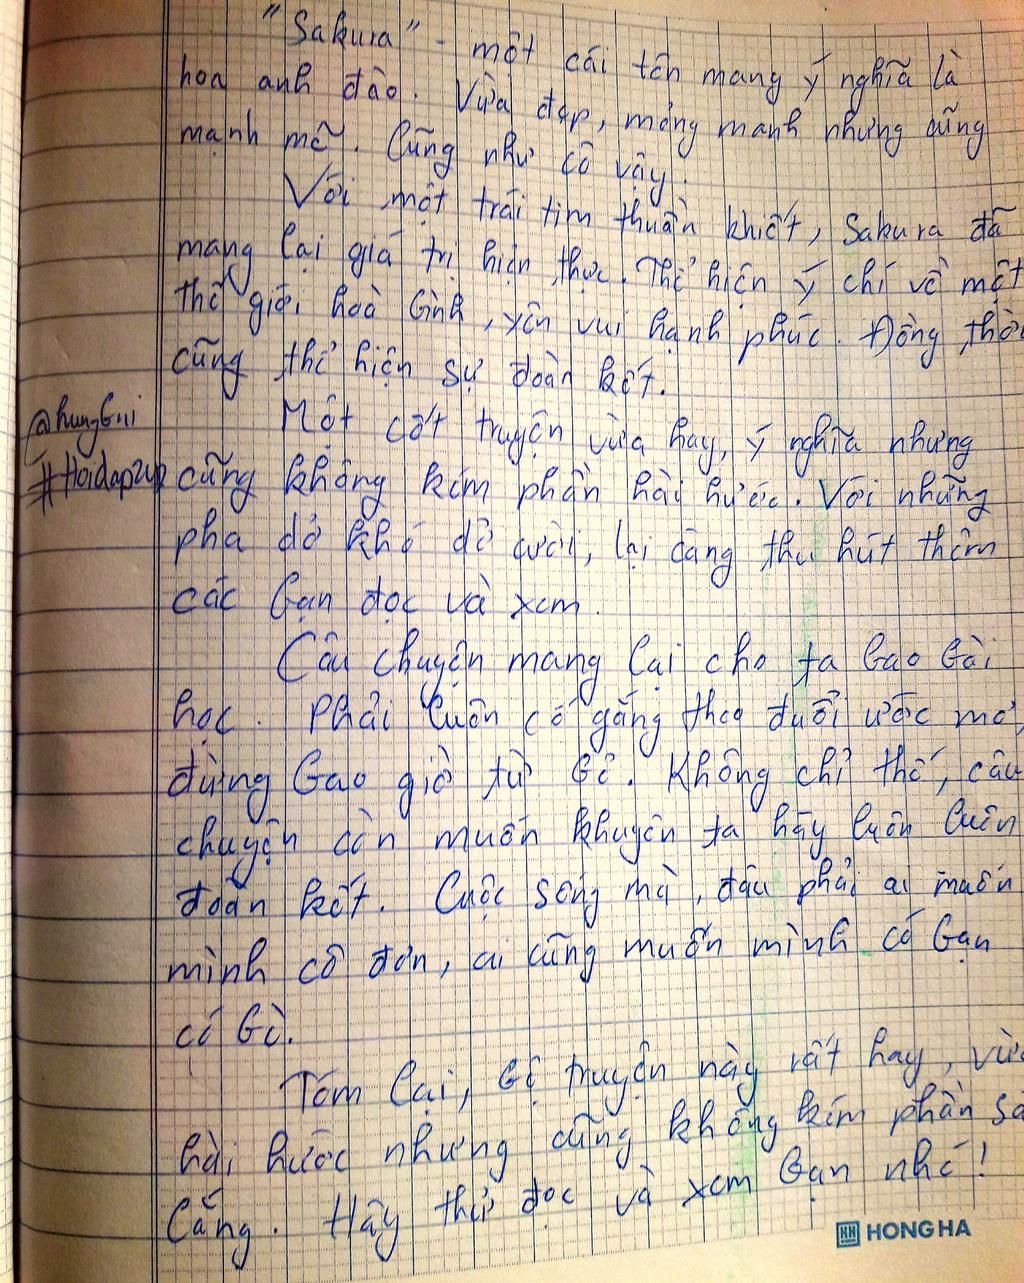 "Sakura" - một cái tên mang ý nghĩa là
hoa anh đào. Vừa đẹp, mỏng manh nhưng cũng
mạnh mẽ. Cũng như cô vậy.
Với một trái tim thuần khiết, Sakura đã
mang lại giá trị hiện thực. Thể hiện ý chí về một
thế giới hoà bình, yên vui hạnh phúc. Đồng thời
cũng thể hiện sự đoàn kết.
Một cốt truyện vừa hay, ý nghĩa nhưng
cũng không kém phần hài hước. Với những
pha dở khó dở cười, lại càng thu hút thêm
các bạn đọc và xem.
Câu chuyện mang lại cho ta bao bài
học. Phải luôn cố gắng theo đuổi ước mơ,
đừng bao giờ từ bỏ. Không chỉ thế, câu
chuyện còn muốn khuyên ta hãy luôn luôn
đoàn kết. Cuộc sống mà, đâu phải ai muốn
mình cô đơn, ai cũng muốn mình có bạn
có bè.
Tóm lại, bộ truyện này rất hay, vừa
hài hước nhưng cũng không kém phần sâ
lắng. Hãy thử đọc và xem bạn nhé!
@hungbui
#Hoidap247
HH HONG HA